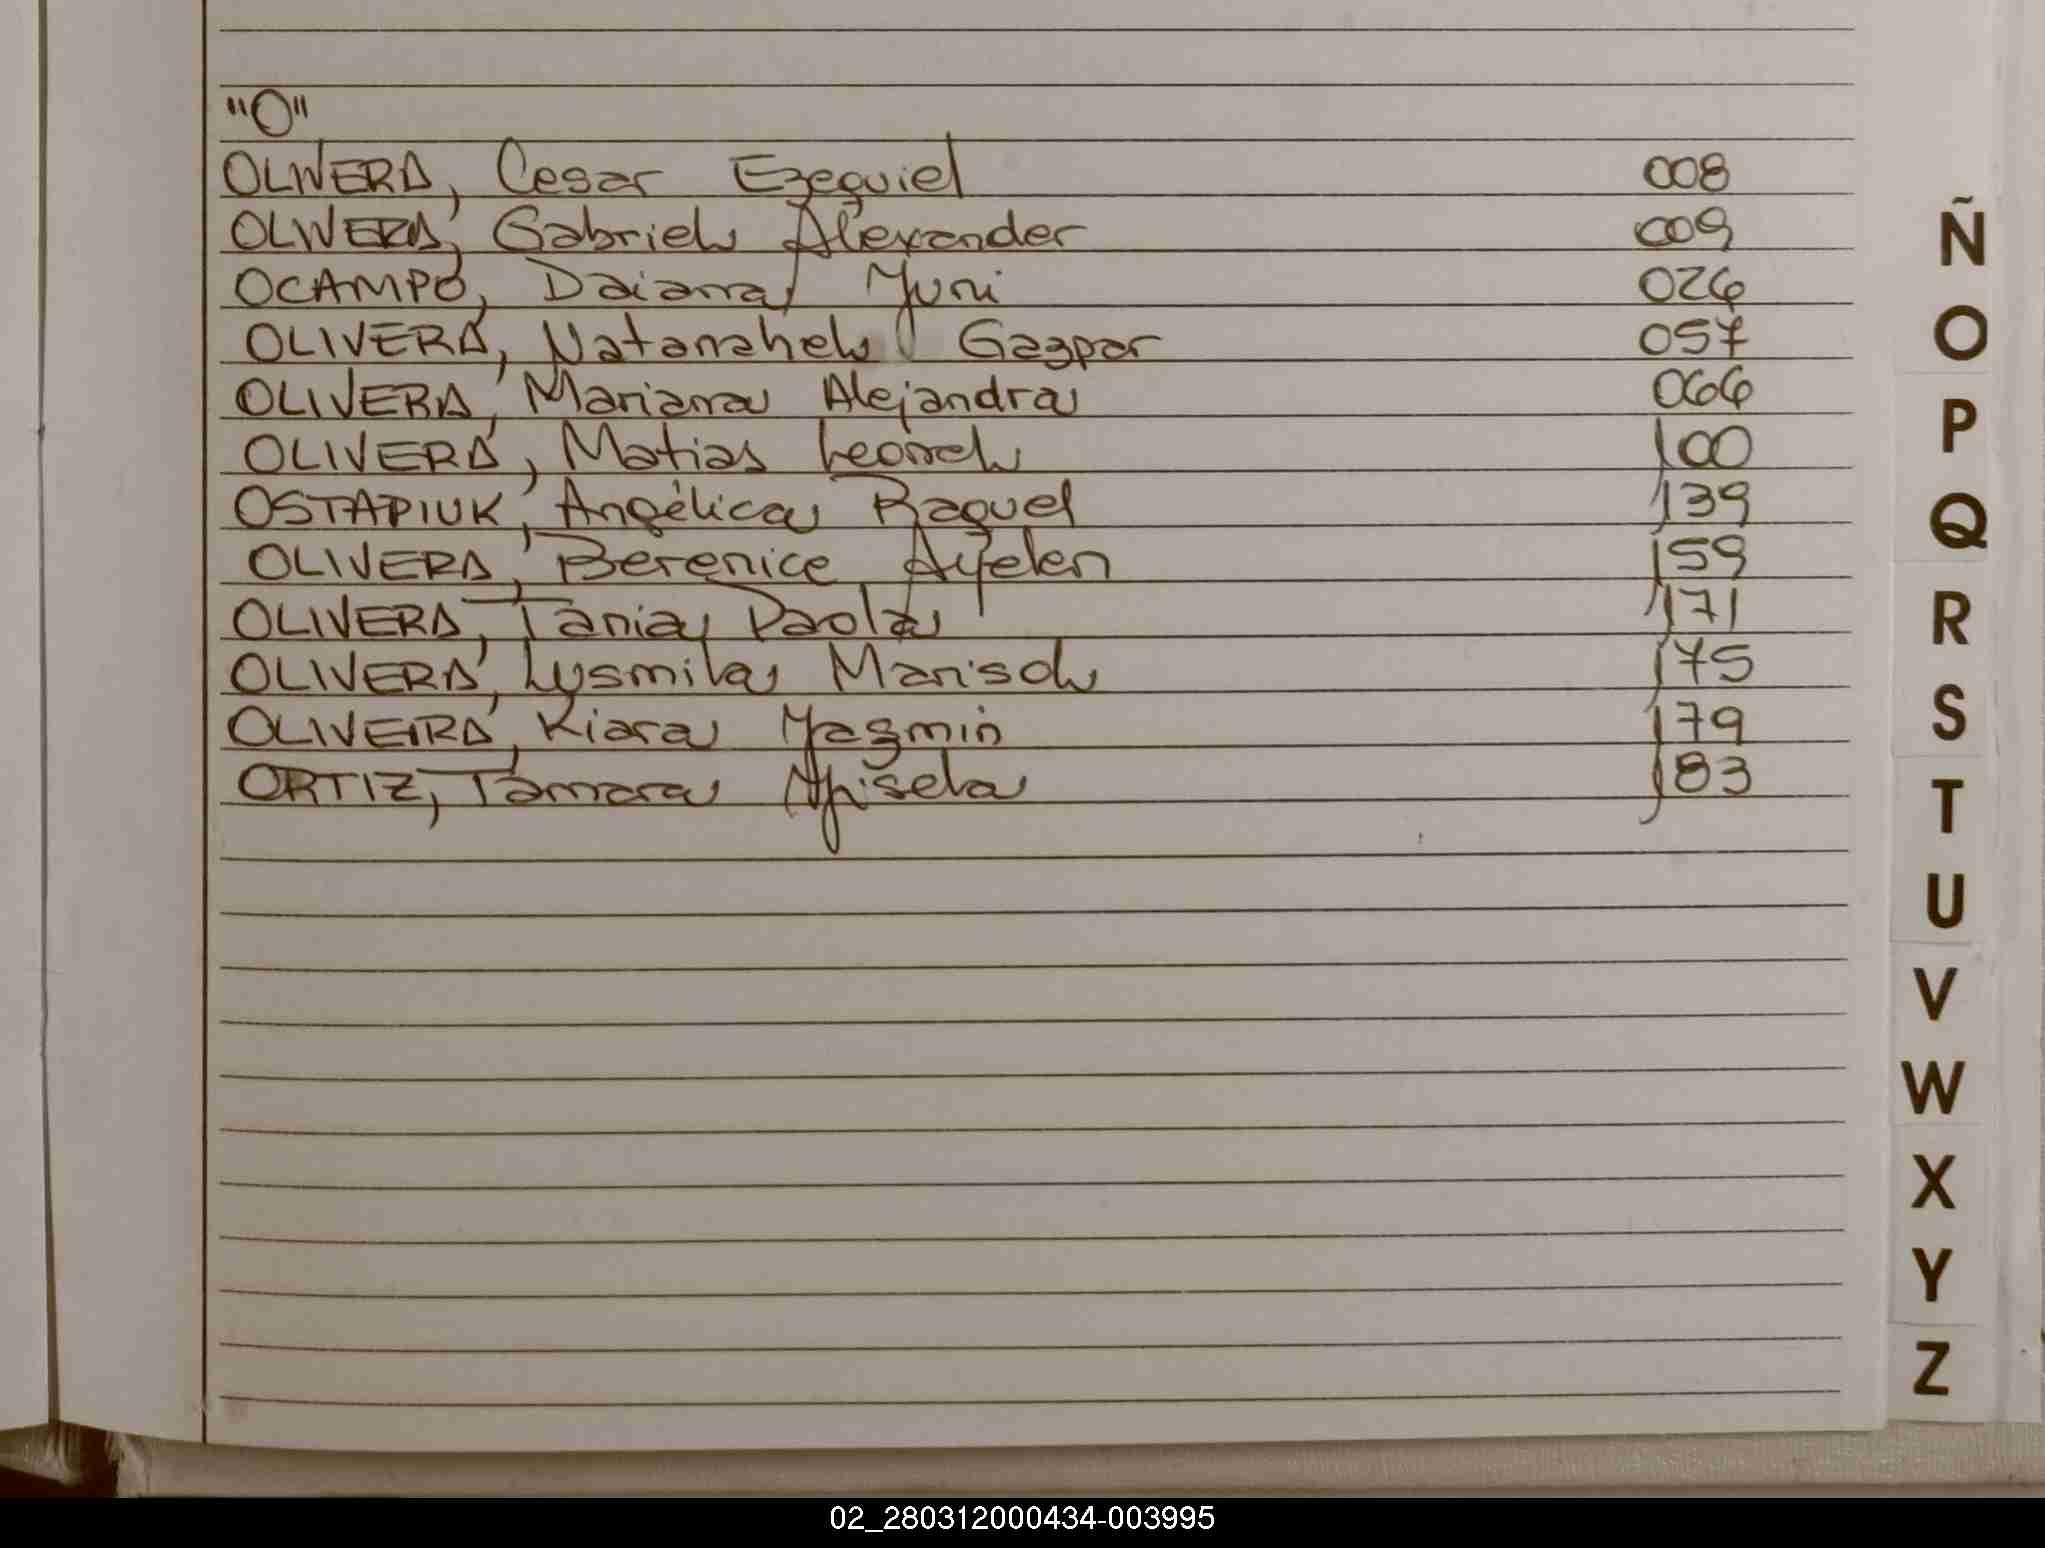 "O"
OLIVERA, Cesar Ezequiel 008
OLIVERA, Gabriel Alexander 009
OCAMPO, Daiana Yuri 026
OLIVERA, Natanahel Gaspar 057
OLIVERA, Mariana Alejandra 066
OLIVERA, Matias Leonel 100
OSTAPIUK, Angélica Raquel 139
OLIVERA, Berenice Ayelen 159
OLIVERA, Tania Paola 171
OLIVERA, Lusmila Marisol 175
OLIVEIRA, Kiara Yazmin 179
ORTIZ, Tamara 183
Ñ
O
P
Q
R
S
T
U
V
W
X
Y
Z
02_280312000434-003995